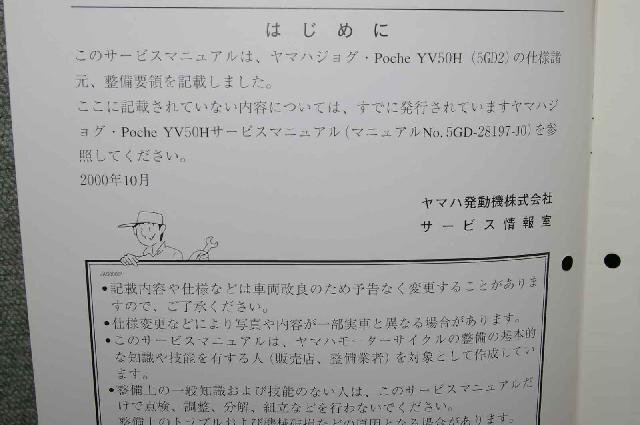 はじめに
このサービスマニュアルは、ヤマハジョグ・Poche YV50H（5GD2）の仕様諸
元、整備要領を記載しました。
ここに記載されていない内容については、すでに発行されていますヤマハジ
ョグ・Poche YV50Hサービスマニュアル（マニュアルNo. 5GD-28197-J0）を参
照してください。
2000年10月
ヤマハ発動機株式会社
サービス情報室
●記載内容や仕様などは車両改良のため予告なく変更することがありま
すので、ご了承ください。
●仕様変更などにより写真や内容が一部実車と異なる場合があります。
●このサービスマニュアルは、ヤマハモーターサイクルの整備の基本的
な知識や技能を有する人（販売店、整備業者）を対象として作成してい
ます。
●整備上の一般知識および技能のない人は、このサービスマニュアルだ
けで点検、調整、分解、組立などを行わないでください。
整備上のトラブルおよび機械破損などの原因となる場合があります。